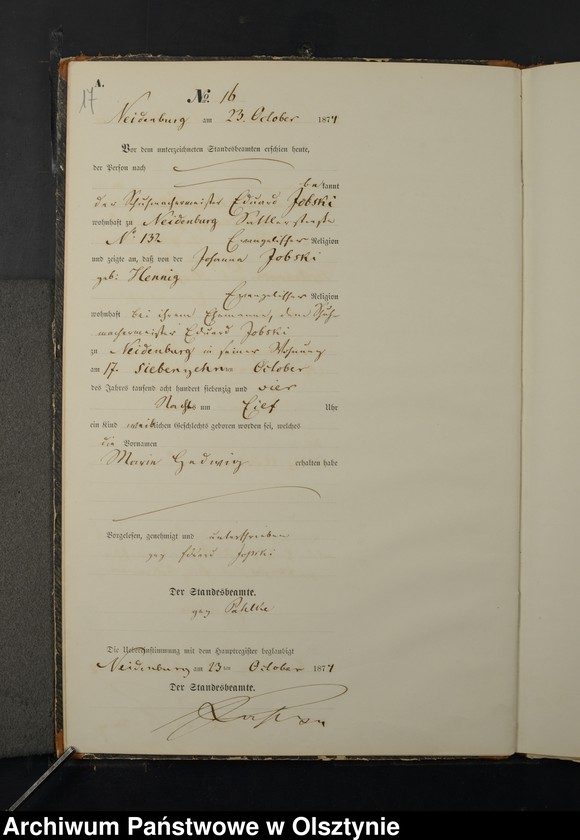 A.
17
No. 16
Neidenburg am 23. October 1874
Vor dem unterzeichneten Standesbeamten erschien heute,
der Person nach
bekannt
der Schuhmachermeister Eduard Jobski
wohnhaft zu Neidenburg Sattlerstraße
No 132 Evangelischer Religion
und zeigte an, daß von der Johanna Jobski
geb: Hennig
Evangelischer Religion
wohnhaft bei ihrem Ehemanne, dem Schuh-
machermeister Eduard Jobski
zu Neidenburg in seiner Wohnung
am 17. siebenzehn October
des Jahres tausend acht hundert siebenzig und vier
Nachts um Eilf Uhr
ein Kind weiblichen Geschlechts geboren worden sei, welches
die Vornamen
Maria Hedwig erhalten habe
Vorgelesen, genehmigt und unterschrieben
gez Eduard Jobski
Der Standesbeamte.
gez
Die Uebereinstimmung mit dem Hauptregister beglaubigt
Neidenburg am 23 ten October 1874
Der Standesbeamte.
Archiwum Państwowe w Olsztynie